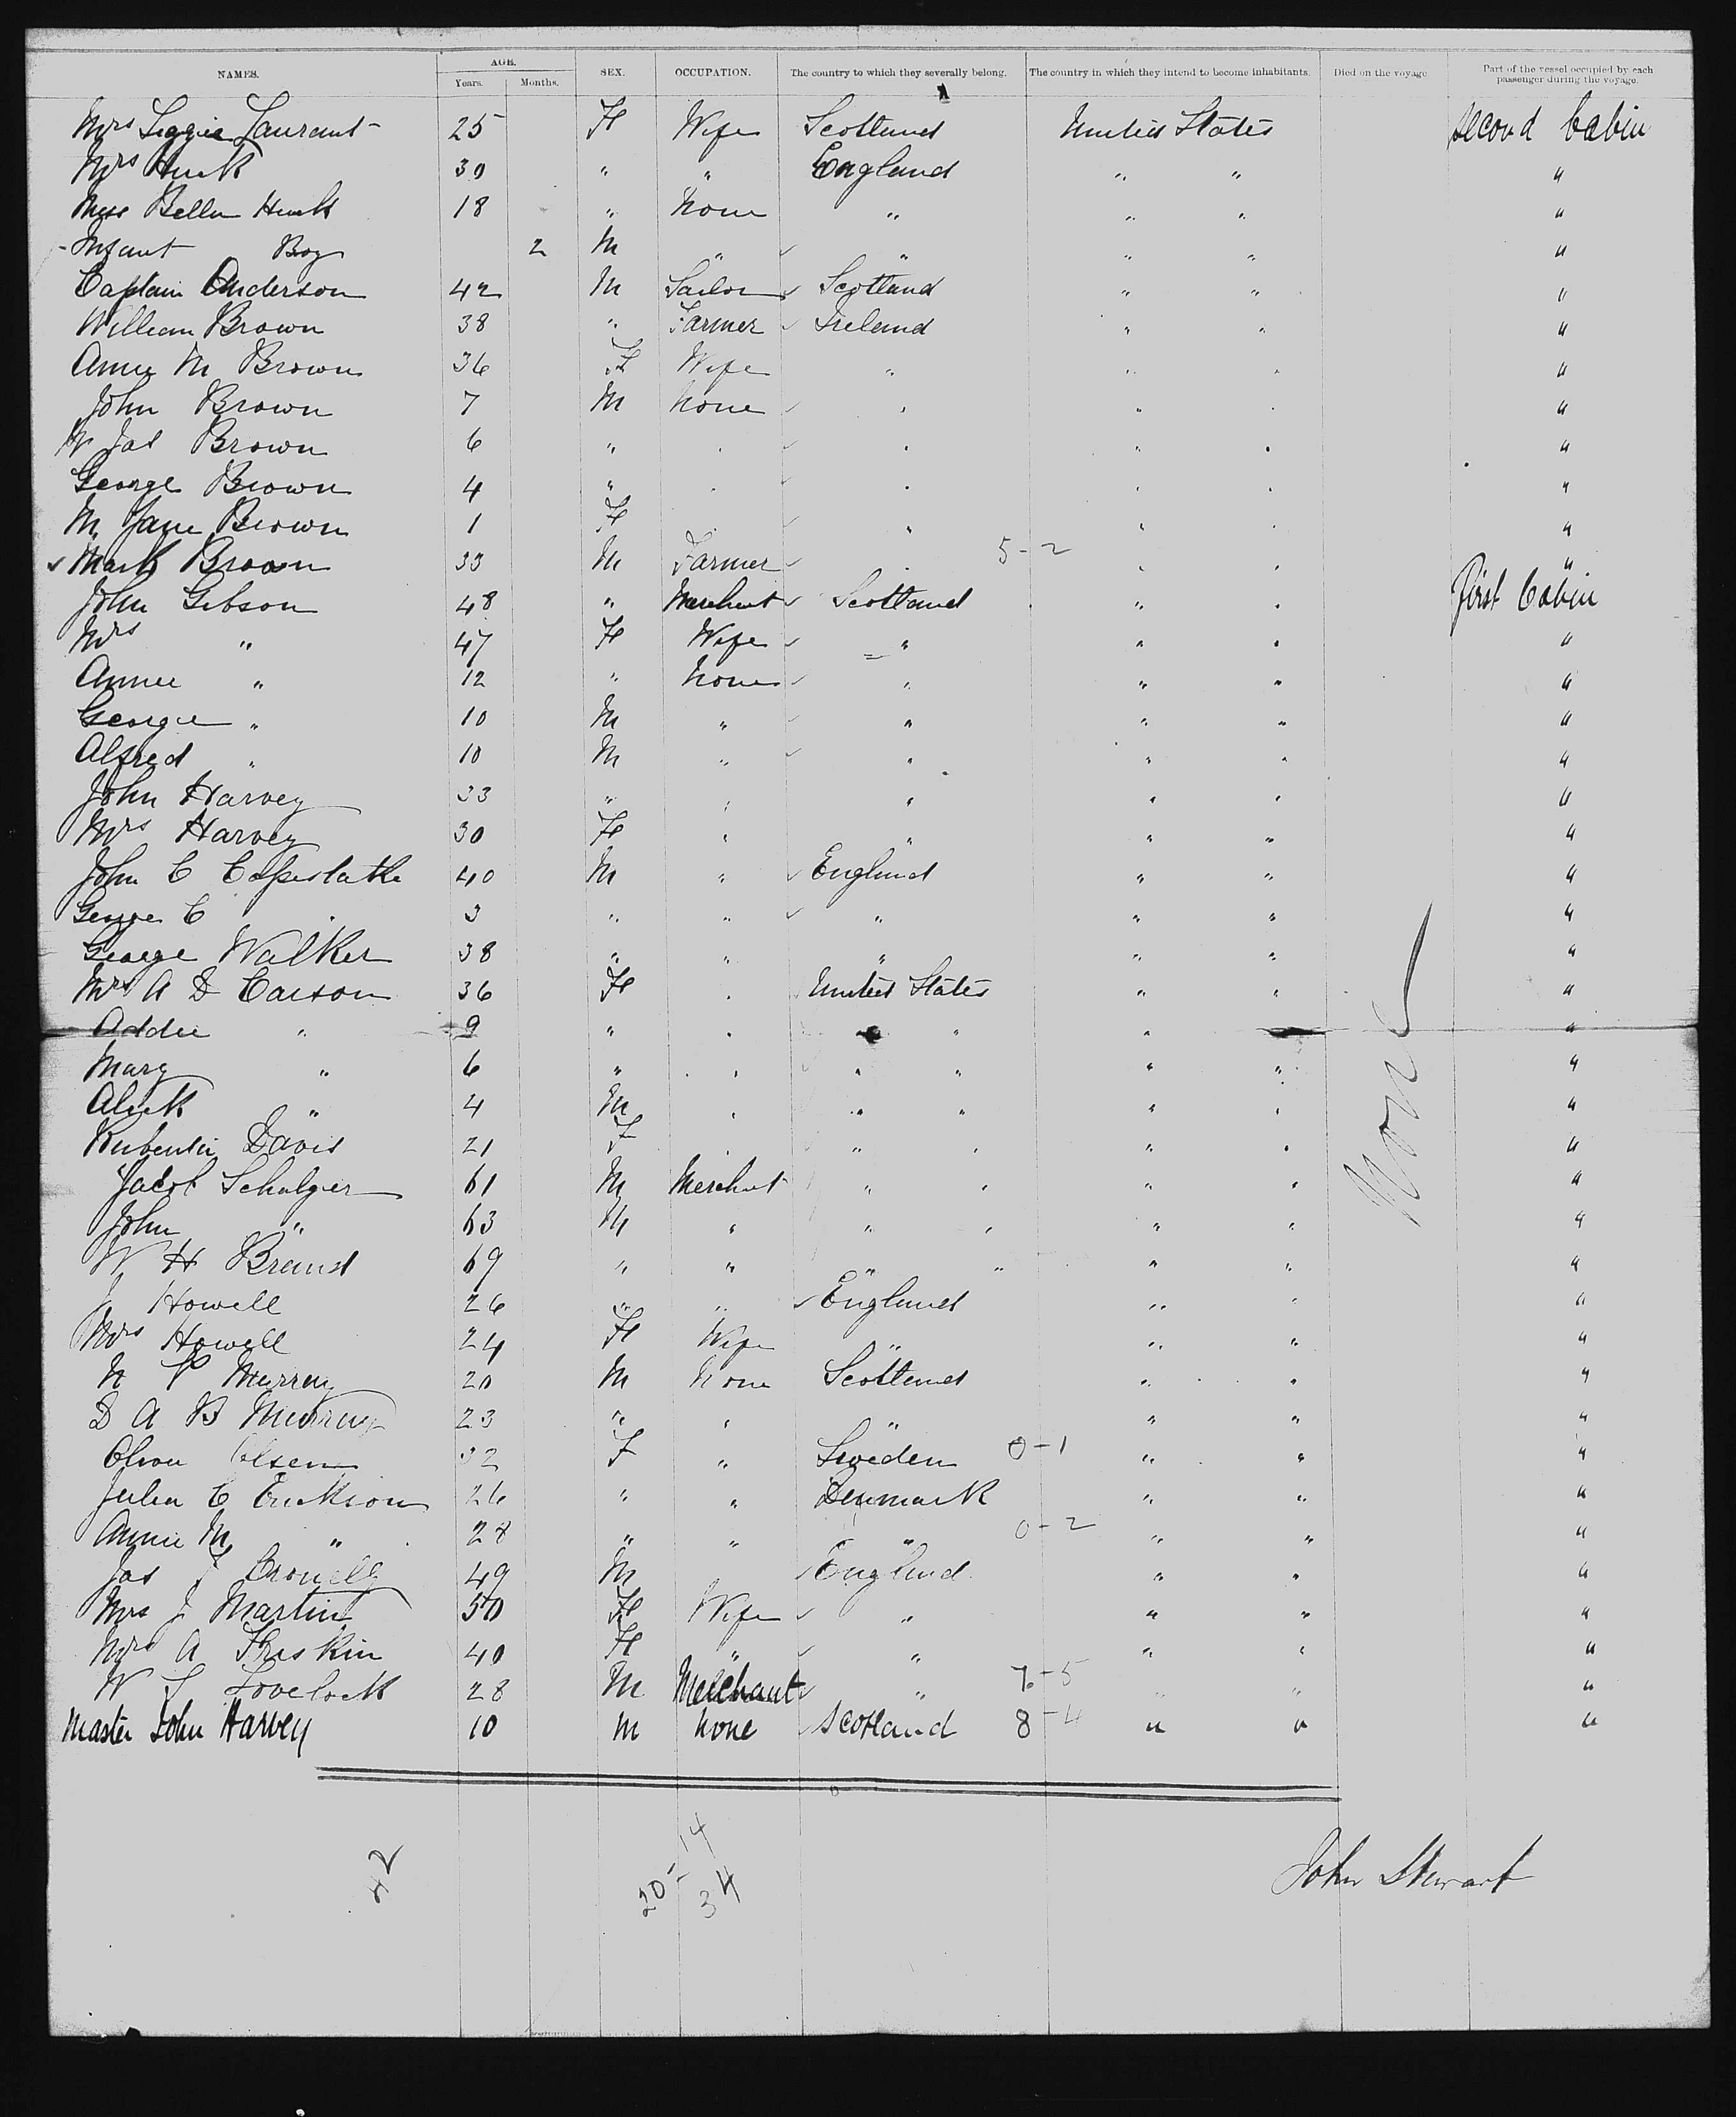 NAMES. AGE. Years. Months. SEX. OCCUPATION. The country to which they severally belong. The country in which they intend to become inhabitants. Died on the voyage. Part of the vessel occupied by each passenger during the voyage.
Mrs Laurant 25 F Wife Scotland United States second Cabin
Mrs Hunk 30 " " England " " "
Miss Bella Hunk 18 " None " " " "
Infant Boy 2 M " " " " "
Captain Anderson 42 M Sailor Scotland " " "
William Brown 38 " Farmer Ireland " " "
Annie M Brown 36 F Wife " " " "
John Brown 7 M None " " " "
W Jas Brown 6 " " " " " "
George Brown 4 " " " " " "
M Jane Brown 1 F " " " "
Mark Brown 33 M Farmer " 5-2 " " "
John Gibson 48 " Merchant Scotland " " First Cabin
Mrs " 47 F Wife " " " "
Annie " 12 " None " " " "
George " 10 M " " " " "
Alfred " 10 M " " " " "
John Harvey 33 " " " " " "
Mrs Harvey 30 F " " " " "
John C 40 M " England " " "
George C " 3 " " " " " "
George Walker 38 " " " " " "
Mrs A D Carson 36 F " United States " " "
Addie " 9 " " " " " "
Mary " 6 " " " " " " "
Aleck " 4 M " " " " " "
Davis 21 F " " " " " "
Jacob 61 M Merchant " " " " "
John " 63 M " " " " " "
W H Brand 69 " " " " " " "
J Howell 26 " " England " " "
Mrs Howell 24 F Wife " " " "
Murray 20 M None Scotland " " "
D A B Murray 23 " " " " " "
Olsen 32 F " Sweden 0-1 " " "
Julia C Erickson 26 " " Denmark " " "
Annie M " 28 " " " 0-2 " " "
Jas 49 M England " " "
Mrs J Martin 50 F Wife " " " "
Mrs A 40 F " " " " "
W Lovelock 28 M Merchant " 7-5 " " "
Master John Harvey 10 M None Scotland 8-4 " " "
None
42
20-14
34
John Stewart